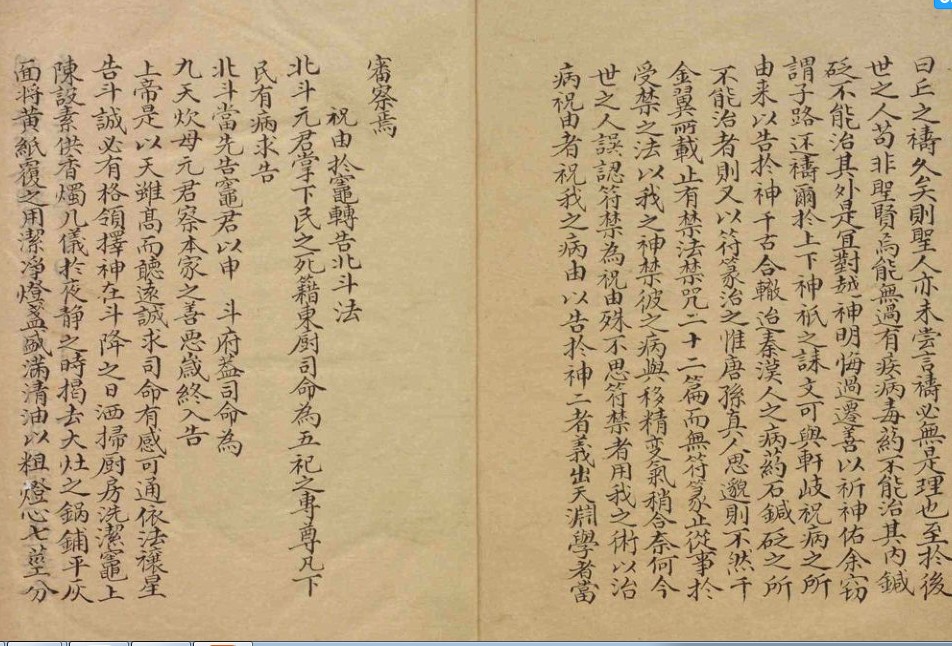 曰丘之禱久矣則聖人亦未尝言禱必無是理也至於後
世之人苟非聖賢烏能無過有疾病毒药不能治其内鍼
砭不能治其外是宜對越神明悔過遷善以祈神佑余窃
謂子路还禱爾於上下神祇之誄文可與軒岐祝病之所
由来以告於神千古合轍迨秦漢人之病药石鍼砭之所
不能治者則又以符篆治之惟唐孫真人思邈則不然千
金翼所載止有禁法禁咒二十二篇而無符篆止從事於
受禁之法以我之神禁彼之病與移精变氣稍合奈何今
世之人誤認符禁為祝由殊不思符禁者用我之術以治
病祝由者祝我之病由以告於神二者義出天淵學者當
審察焉
祝由於竈轉告北斗法
北斗元君掌下民之死籍東厨司命為五祀之專尊凡下
民有病求告
北斗當先告竈君以申 斗府葢司命為
九天炊母元君察本家之善惡歳終入告
上帝是以天雖髙而聽遠誠求司命有感可通依法禳星
告斗誠必有格領擇神在斗降之日洒掃厨房洗潔竈上
陳設素供香燭几儀於夜静之時揭去大灶之鍋鋪平灰
面将黄紙覆之用潔净燈盞盛满清油以粗燈心七莖分